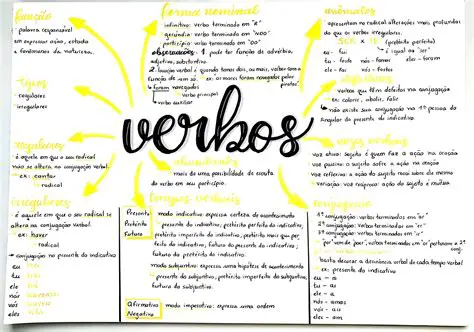 função
palavra responsável
em expressar ação, estado
e fenômenos da natureza.
tipos
- regulares
- irregulares
regulares
- é aquele em que o seu radical
não se altera na conjugação verbal.
ex: cantar
radical
irregulares
é aquele em que o seu radical se
altera na conjugação verbal.
ex: haver
radical
conjugação no presente do indicativo
eu hei
tu
ele há
nós
vós
eles
forma nominal
infinitivo: verbo terminado em "R"
gerúndio: verbo terminado em "NDO"
particípio: verbo terminado em "DO"
observações: 1. pode ter função de advérbio,
adjetivo, substantivo.
2. locução verbal é quando temos dois, ou mais, verbos com a
função de um só. ex: os mares foram navegados pelos
piratas.
foram navegados
verbo principal
verbo auxiliar
verbos
abundantes
mais de uma possibilidade de escrita
do verbo em seu particípio.
tempos verbais
Presente
Pretérito
Futuro
modo indicativo: expressa certeza do acontecimento
presente do indicativo, pretérito perfeito do indicativo,
pretérito imperfeito do indicativo, pretérito mais que per
feito do indicativo, futuro do presente do indicativo,
futuro do pretérito do indicativo.
modo subjuntivo: expressa uma hipótese do acontecimento
presente do subjuntivo, pretérito imperfeito do subjuntivo,
futuro do subjuntivo.
Afirmativo
Negativo
modo imperativo: expressa uma ordem
anômalos
apresentam no radical alterações mais profundas
do que os verbos irregulares.
SER x IR (pretérito perfeito)
eu - fui
tu - foste
ele - foi
nós - fomos
vós - fostes
eles - foram
é igual ao "ser"
defectivos
verbos que têm defeitos na conjugação
ex: colorir, abolir, falir
não existe sua conjugação na 1ª pessoa do
singular do presente do indicativo.
vozes verbais
voz ativa: sujeito é quem faz a ação na oração
voz passiva: o sujeito sofre a ação na oração
voz reflexiva: a ação do sujeito recai sobre ele mesmo
variação voz recíproca: ação do sujeito é mútua.
conjugações
1ª conjugação: verbos terminados em "ar"
2ª conjugação: verbos terminados em "er"
3ª conjugação: verbos terminados em "ir"
"pôr" vem de "poer", verbos terminados em "or" pertencem a 2ª conj.
basta decorar a desinência verbal de cada tempo verbal
ex: presente do indicativo
eu - o
tu - as
ele - a
nós - amos
vós - ais
eles - am